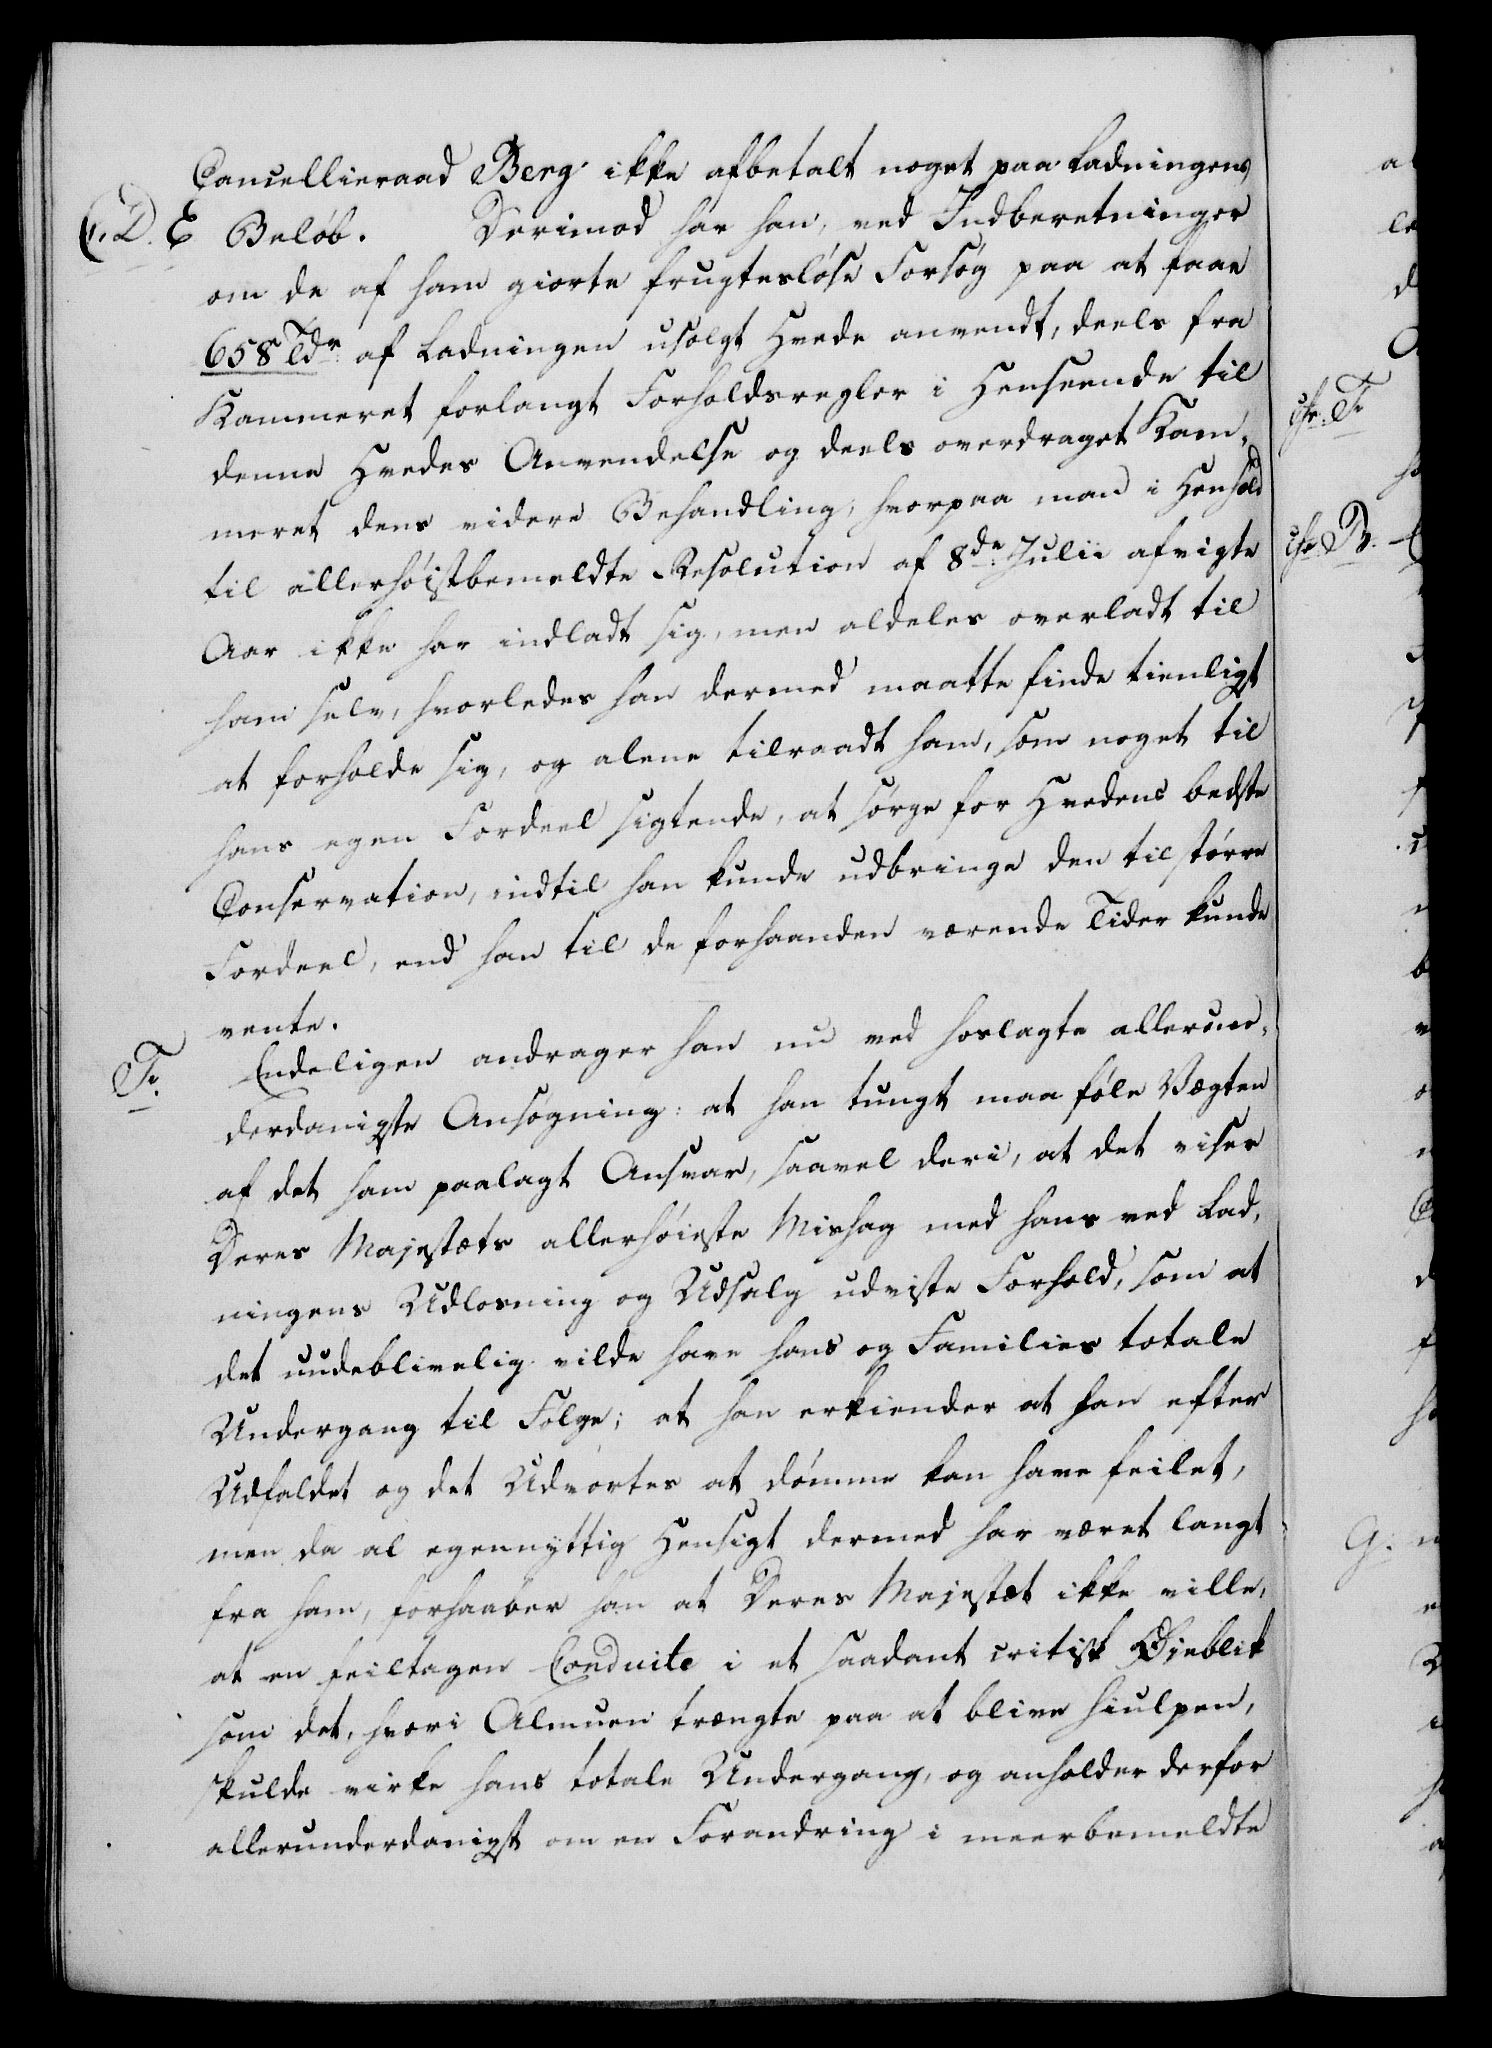 Cancellieraad Berg ikke afbetalt noget paa Ladningens
C. D. E Beløb. Derimod har han, ved Indberetninger
om de af ham giorte frugtesløse Forsøg paa at faae
658 Tdr af Ladningen usolgt Hvede anvendt, deels fra
Kammeret forlangt Forholdsregler i Henseende til
denne Hvedes Anvendelse og deels overdraget Kam-
meret dens videre Behandling, hvorpaa man i Henhold
til allerhøistbemeldte Resolution af 8de Julii afvigte
Aar ikke har indladt sig, men aldeles overladt til
ham selv, hvorledes han dermed maatte finde tienligt
at forholde sig, og alene tilraadt ham, som noget til
hans egen Fordeel sigtende, at sørge for Hvedens bedste
Conservation, indtil han kunde udbringe den til større
Fordeel, end han til de forhaanden værende Tider kunde
vente.
F. Endeligen andrager han nu ved hoslagte allerun-
derdanigste Ansøgning: at han tungt maa føle Vægten
af det ham paalagt Ansvar, saavel deri, at det viser
Deres Majestæts allerhøieste Mishag med hans ved Lad-
ningens Udlosning og Udsalg udviste Forhold, som at
det uudeblivelig vilde have hans og Families totale
Undergang til Følge; at han erkiender at han efter
Udfaldet og det Udvortes at dømme kan have feilet,
men da al egennyttig Hensigt dermed har været langt
fra ham, forhaaber han at Deres Majestæt ikke ville,
at en feiltagen Conduite i et saadant critisk Øieblik
som det, hvori Almuen trængte paa at blive hiulpen,
skulde virke hans totale Undergang, og anholder derfor
allerunderdanigst om en Forandring i meerbemeldte
cfr. F.
cfr. B.
G.